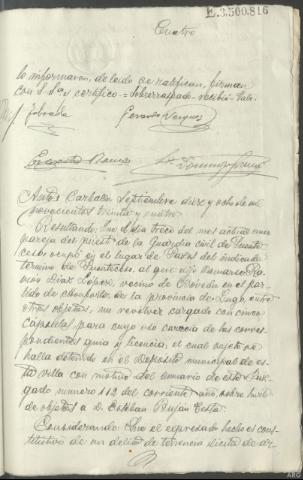 E.3.500.816
Cuatro
lo informaron, de leido se ratifican, firman
con S. Sª y certifico = sobrerraspado = recibió = Vale.
Gerardo Vazquez
Auto = Carballo Septiembre diez y ocho de mil
novecientos treinta y cuatro.
Resultando: Que el dia trece del mes actual una
pareja del puesto de la Guardia civil de Puente
ceso, ocupó en el lugar de
termino de Puenteceso, al que dijo llamarse
Diaz Lopez, vecino de en el par-
tido de Chantada, de la provincia de Lugo, entre
otros objetos, un revolver cargado con cinco
cápsulas para cuyo uso carecia de las corres-
pondientes guia y licencia, el cual sujeto se
halla detenido en el Deposito municipal de es-
ta villa con motivo del sumario de este Juz-
gado numero 112 del corriente año, sobre hurto
de objetos a D. Esteban Puján Testa.
Considerando: Que el expresado hecho es cons-
titutivo de un delito de tenencia ilicita de ar-
ARG